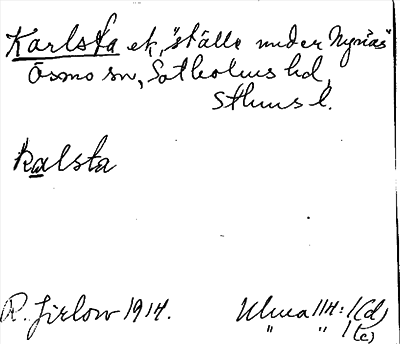 Karlsta ek, "ställe under Nynäs"
Ösmo sn, Sotholms hd,
Sthms l.
Kalsta
R. Jirlow 1914.
Ulma 114: 1(d)
" " 1(c)